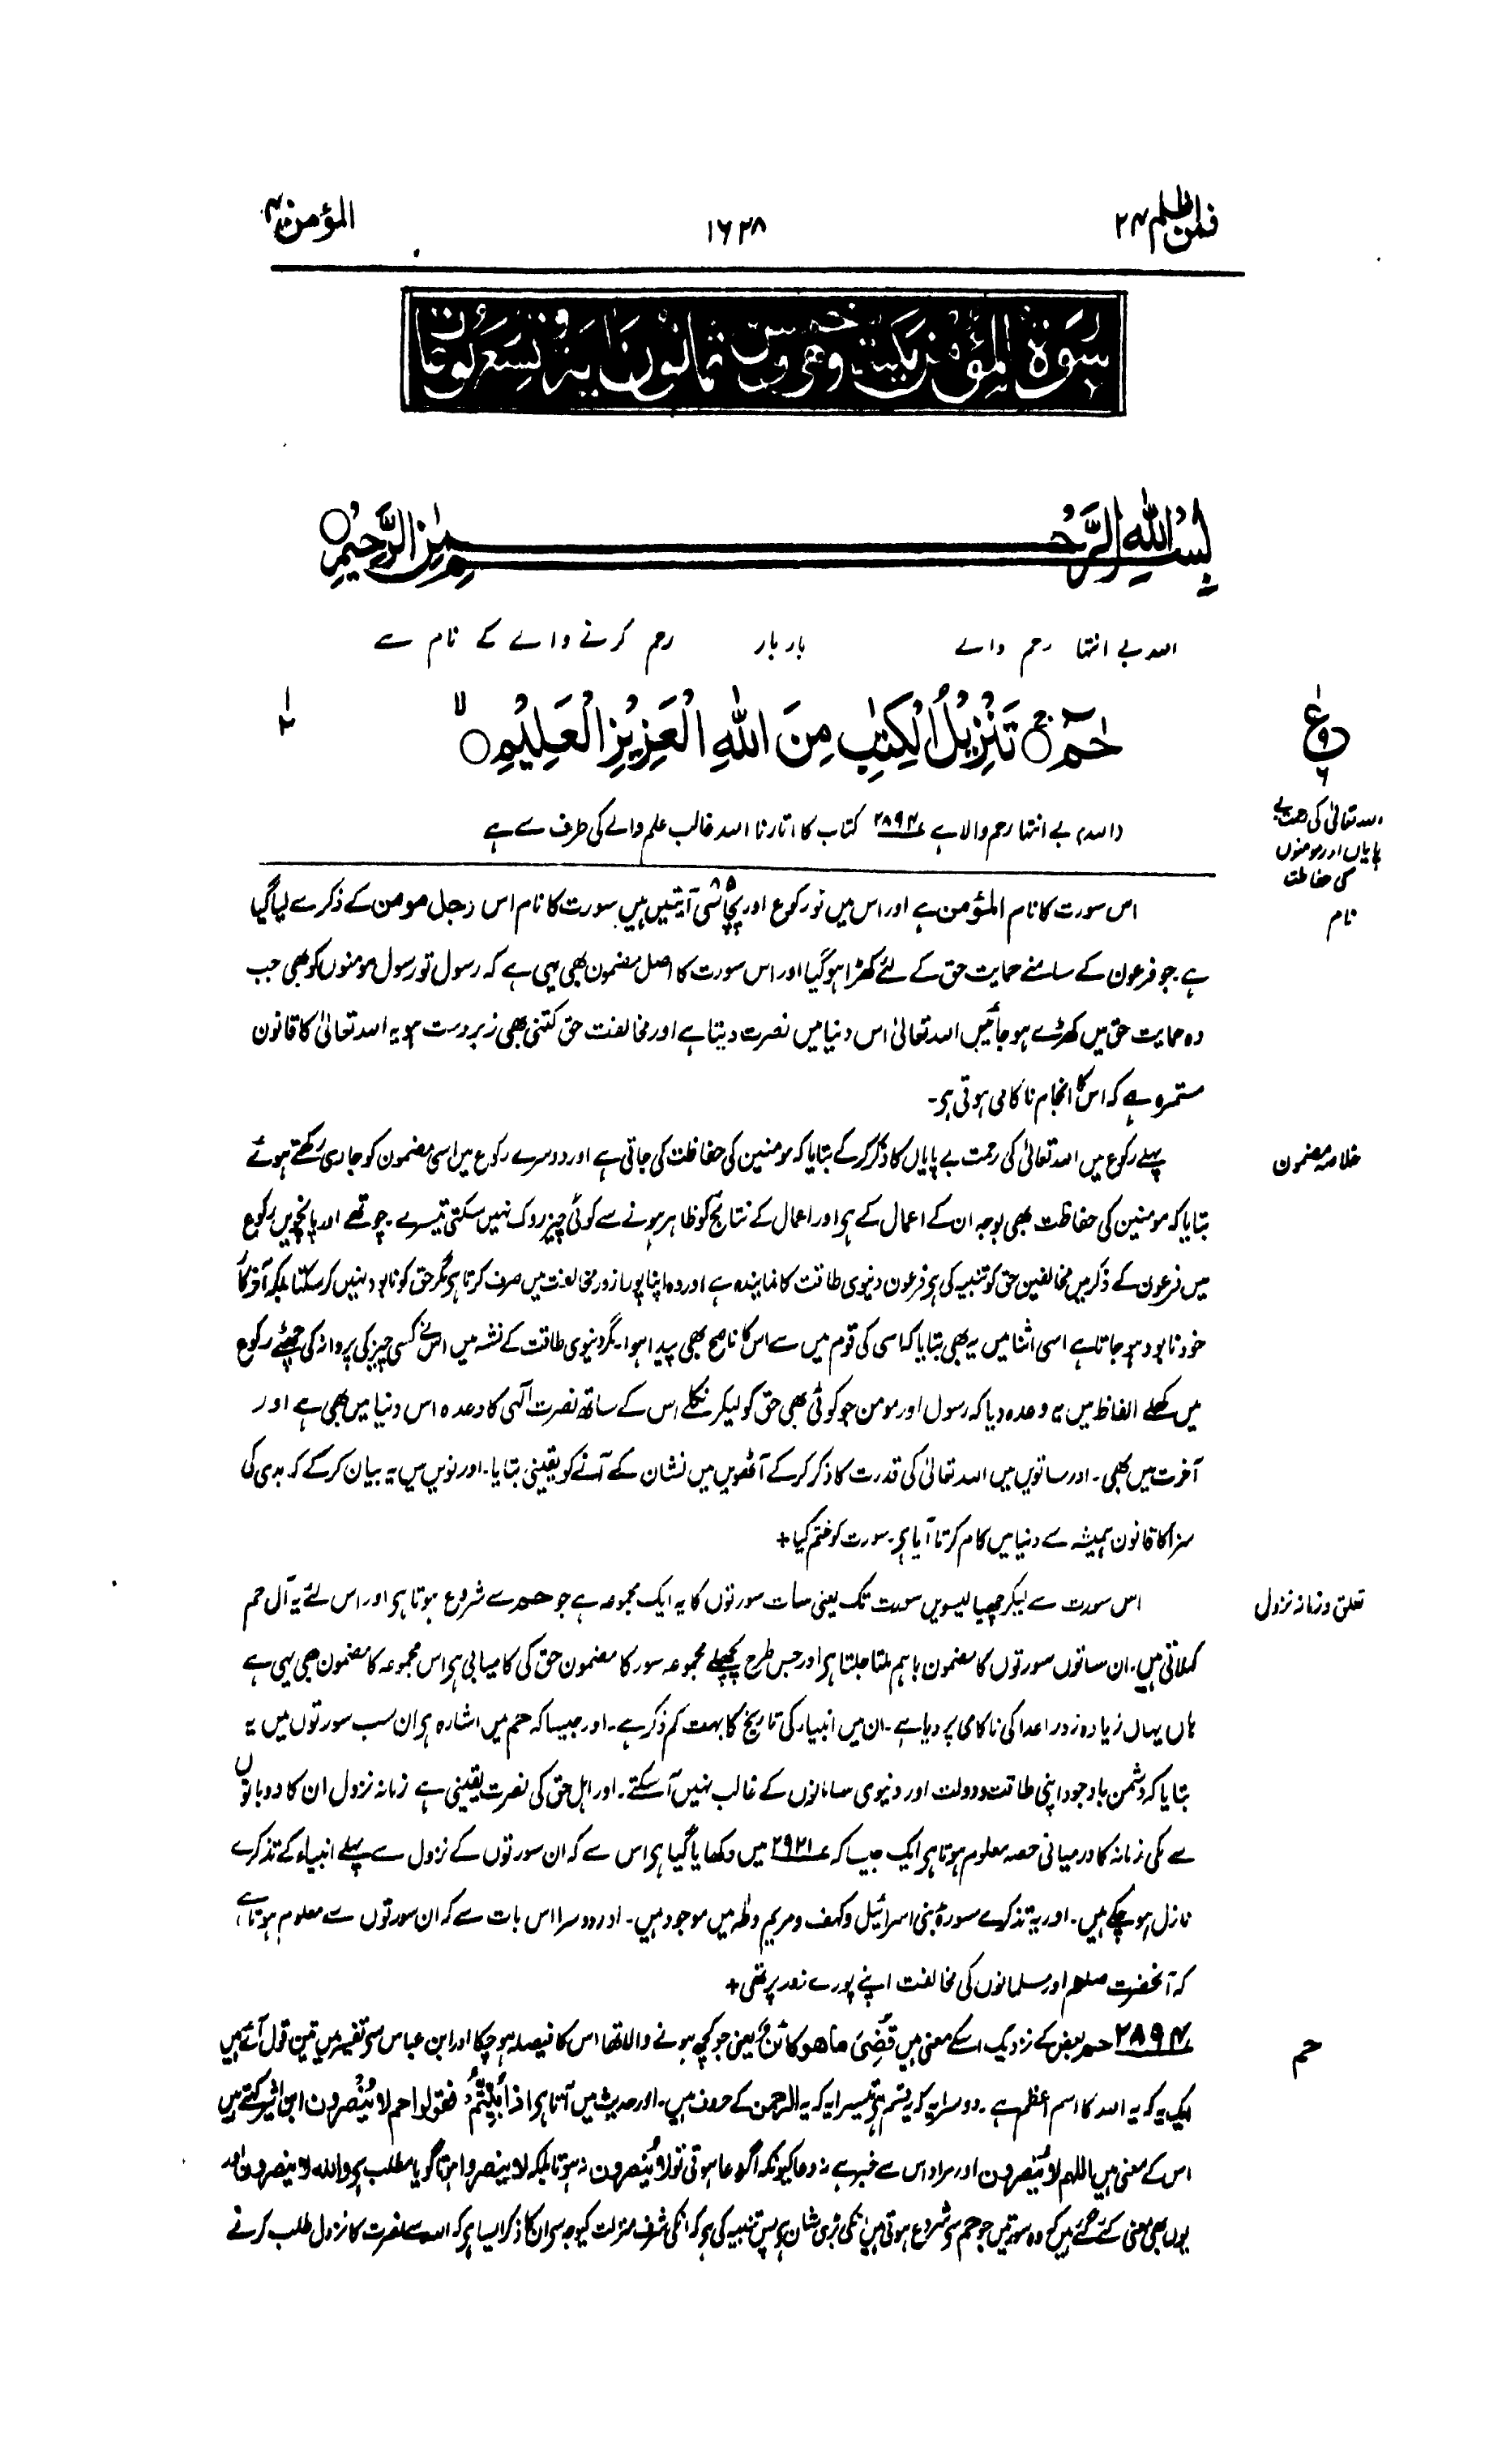 فمن اظلم ۲۴
۱۶۲۸
المؤمن ۴۰
سورة المؤمن مکیة وھی خمس وثمانون ایة وتسع رکوعات
بِسْمِ اللّٰهِ الرَّحْمٰنِ الرَّحِیْمِ ○
اللہ بے انتہا رحم والے بار بار رحم کرنے والے کے نام سے
حٰمٓ ○ ج تَنْزِیْلُ الْکِتٰبِ مِنَ اللّٰهِ الْعَزِیْزِ الْعَلِیْمِ ○ لا
ع
۹
۶
۱
۲
(اللہ) بے انتہا رحم والا ہے ۲۸۹۴ کتاب کا اتارنا اللہ غالب علم والے کی طرف سے ہے
اللہ تعالیٰ کی رحمت بے
پایاں اور مومنوں
کی حفاظت
نام
اس سورت کا نام المؤمن ہے اور اس میں نو رکوع اور پچاسی ۸۵ آیتیں ہیں سورت کا نام اس رجل مومن کے ذکر سے لیا گیا
ہے جو فرعون کے سامنے حمایت حق کے لئے کھڑا ہو گیا اور اس سورت کا اصل مضمون بھی یہی ہے کہ رسول تو رسول مومنوں کو بھی جب
وہ حمایت حق میں کھڑے ہو جائیں اللہ تعالیٰ اس دنیا میں نصرت دیتا ہے اور مخالفت حق کتنی بھی زبردست ہو یہ اللہ تعالیٰ کا قانون
مستمرہ ہے کہ اس کا انجام ناکامی ہوتی ہو۔
خلاصہ مضمون
پہلے رکوع میں اللہ تعالیٰ کی رحمت بے پایاں کا ذکر کر کے بتایا کہ مومنین کی حفاظت کی جاتی ہے اور دوسرے رکوع میں اسی مضمون کو جاری رکھتے ہوئے
بتایا کہ مومنین کی حفاظت بھی بوجہ ان کے اعمال کے ہو اور اعمال کے نتائج کو ظاہر ہونے سے کوئی چیز روک نہیں سکتی تیسرے۔ چوتھے اور پانچویں رکوع
میں فرعون کے ذکر میں مخالفین حق کو تنبیہ کی ہو فرعون دنیوی طاقت کا نمایندہ ہے اور وہ اپنا پورا زور مخالفت میں صرف کرتا ہو مگر حق کو نابود نہیں کر سکتا بلکہ آخرکار
خود نابود ہو جاتا ہے اسی اثنا میں یہ بھی بتایا کہ اسی کی قوم میں سے اس کا ناصح بھی پیدا ہوا۔ مگر دنیوی طاقت کے نشہ میں اس نے کسی چیز کی پروا نہ کی چھٹے رکوع
میں کھلے الفاظ میں یہ وعدہ دیا کہ رسول اور مومن جو کوئی بھی حق کو لیکر نکلے اس کے ساتھ نصرت الٰہی کا وعدہ اس دنیا میں بھی ہے اور
آخرت میں بھی۔ اور ساتویں میں اللہ تعالیٰ کی قدرت کا ذکر کر کے آٹھویں میں نشان کے آنے کو یقینی بتایا۔ اور نویں میں یہ بیان کر کے کہ بدی کی
سزا کا قانون ہمیشہ سے دنیا میں کام کرتا آیا ہو۔ سورت کو ختم کیا +
تعلق و زمانہ نزول
اس سورت سے لیکر چھیالیسویں سورت تک یعنی سات سورتوں کا یہ ایک مجموعہ ہے جو حٰم سے شروع ہوتا ہو اور اس لئے یہ آل حم
کہلاتی ہیں۔ ان ساتوں سورتوں کا مضمون باہم ملتا جلتا ہو اور جس طرح پچھلے مجموعہ سور کا مضمون حق کی کامیابی ہو اس مجموعہ کا مضمون بھی یہی ہے
ہاں یہاں زیادہ زور اعدا کی ناکامی پر دیا ہے۔ ان میں انبیاء کی تاریخ کا بہت کم ذکر ہے۔ اور جیسا کہ حٰم میں اشارہ ہو ان سب سورتوں میں یہ
بتایا کہ دشمن باوجود اپنی طاقت و دولت اور دنیوی سامانوں کے غالب نہیں آ سکتے۔ اور اہل حق کی نصرت یقینی ہے زمانہ نزول ان کا دو باتوں
سے مکی زمانہ کا درمیانی حصہ معلوم ہوتا ہو ایک جیسا کہ ۲۹۲۱ میں دکھایا گیا ہو اس سے کہ ان سورتوں کے نزول سے پہلے انبیاء کے تذکرے
نازل ہو چکے ہیں۔ اور یہ تذکرے سورۂ بنی اسرائیل و کہف و مریم و طٰہٰ میں موجود ہیں۔ اور دوسرا اس بات سے کہ ان سورتوں سے معلوم ہوتا ہے
کہ آنحضرت صلعم اور مسلمانوں کی مخالفت اپنے پورے زور پر تھی +
حم
۲۸۹۴ حٰم بعض کے نزدیک اسکے معنی ہیں قُضِیَ ما ھو کائن یعنی جو کچھ ہونے والا تھا اس کا فیصلہ ہو چکا اور ابن عباس سو تفسیر میں تین قول آئے ہیں
ایک یہ کہ یہ اللہ کا اسم اعظم ہے۔ دوسرا یہ کہ یہ قسم ہو تیسرا یہ کہ یہ الرحمن کے حروف ہیں۔ اور حدیث میں آتا ہو اذا بُیّتُّم فقولوا حم لا یُنْصرون ابن اثیر کہتے ہیں
اس کے معنی ہیں اللھم لا یُنصرون اور مراد اس سے خبر ہے نہ دعا کیونکہ اگر دعا ہوتی تو لا یُنصرون نہ ہوتا بلکہ لا ینصروا ہوتا گویا مطلب ہو واللہ لا ینصرون اور
یوں بھی معنی کئے گئے ہیں کہ وہ سورتیں جو حم سو شروع ہوتی ہیں انکی بڑی شان ہو پس تنبیہ کی ہو کہ انکی شرف منزلت کیوجہ سو ان کا ذکر ایسا ہو کہ اللہ سے نصرت کا نزول طلب کرنے